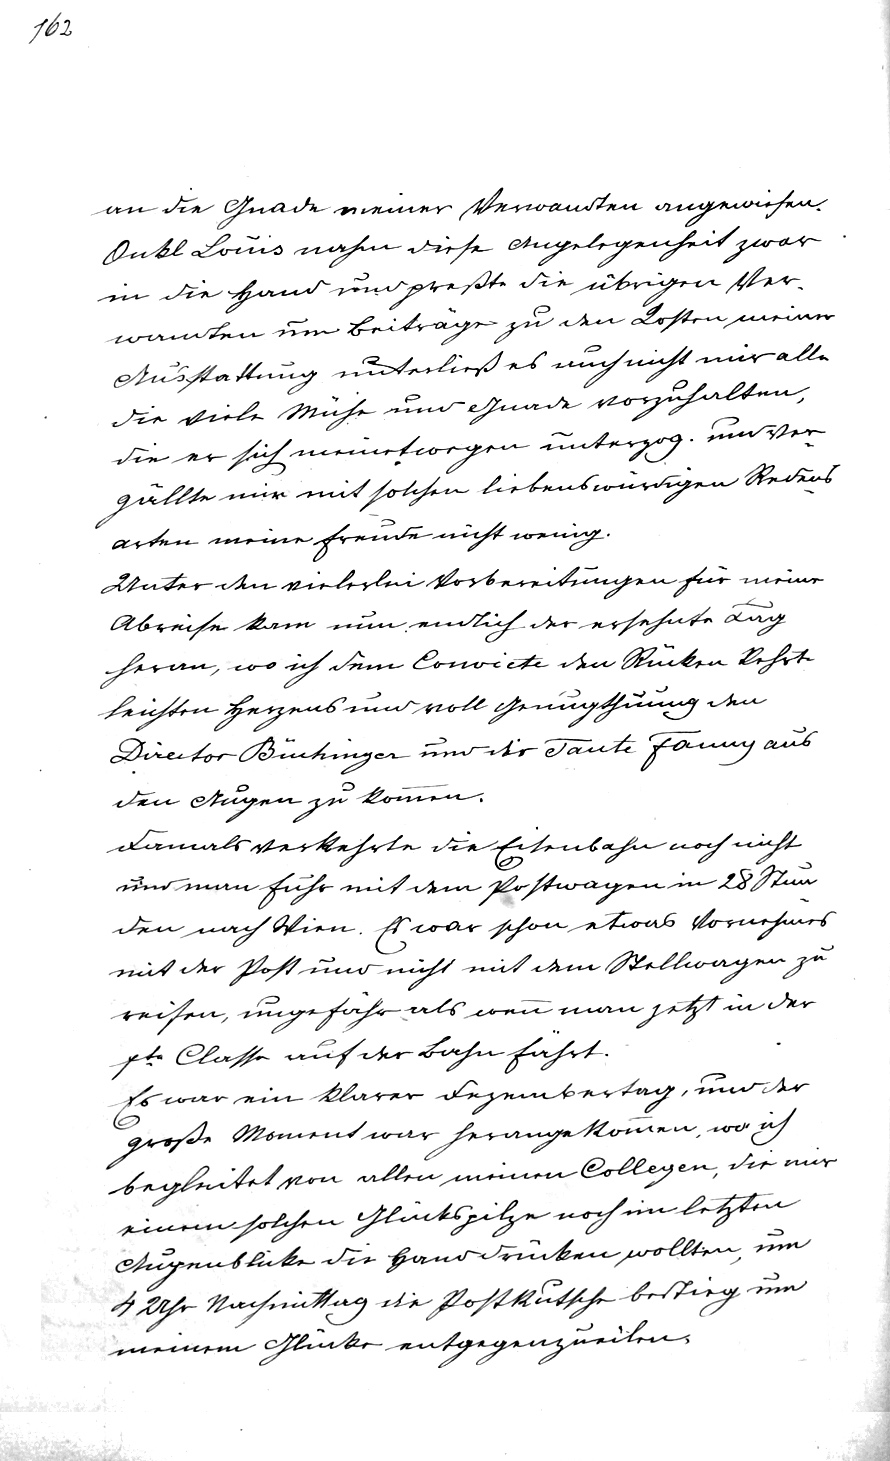 162
an die Gnade meiner Verwandten angewiesen.
Onkl Louis nahm diese Angelegenheit zwar
in die Hand und preßte die übrigen Ver-
wandten um Beiträge zu den Kosten meiner
Ausstattung unterließ es auch nicht mir alle
die viele Mühe und Gnade vorzuhalten,
die er sich meinetwegen unterzog. und ver-
gällte mir mit solchen liebenswürdigen Redens
arten meine Freude nicht wenig.
Unter den vielerlei Vorbereitungen für meine
Abreise kam nun endlich der ersehnte Tag
heran, wo ich dem Convicte den Rücken kehrte
leichten Herzens und voll Genugthuung den
Director Büchinger und die Tante Fanny aus
den Augen zu kom̄en.
Damals verkehrte die Eisenbahn noch nicht
und man fuhr mit dem Postwagen in 28 Stun
den nach Wien. Es war schon etwas Vornehmes
mit der Post und nicht mit dem Stellwagen zu
reisen, ungefähr als wen̄ man jetzt in der
1te Classe auf der Bahn fährt.
Es war ein klarer Dezembertag, und der
große Moment war herangekom̄en, wo ich
begleitet von allen meinen Collegen, die mir
einem solchen Glückspilze noch im letzten
Augenblicke die Hand drücken wollten, um
4 Uhr Nachmittag die Postkutsche bestieg um
meinem Glücke entgegenzueilen.